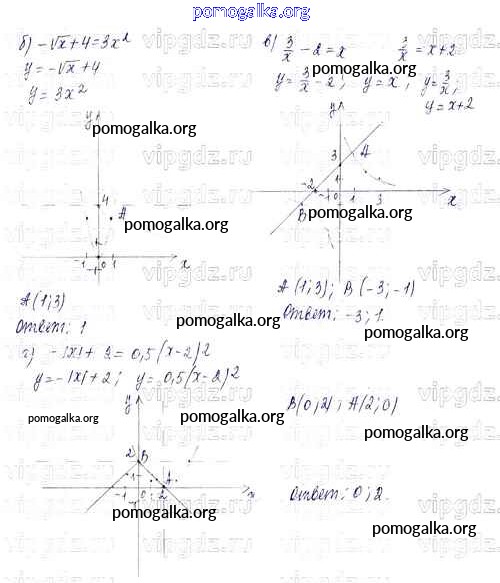 pomogalka.org
б) -√x+4=3x²
y=-√x+4
y=3x²
y
pomogalka.org
4
A
-1 0 1 x
-1
A(1;3)
Ответ: 1
pomogalka.org
в) 3/x - 2 = x 3/x = x+2
y=3/x-2; y=x, y=3/x,
y=x+2
pomogalka.org
y
3 A
-2 1
-1 0 1 3 x
B
pomogalka.org
A(1;3); B(-3;-1)
Ответ: -3; 1.
pomogalka.org
г) -|x|+2=0,5(x-2)2
y=-|x|+2; y=0,5(x-2)2
pomogalka.org
pomogalka.org
y
2 B
1 A
-1 2 x
-1
pomogalka.org
B(0;2); A(2;0)
pomogalka.org
Ответ: 0; 2.
pomogalka.org
vipgdz.ru